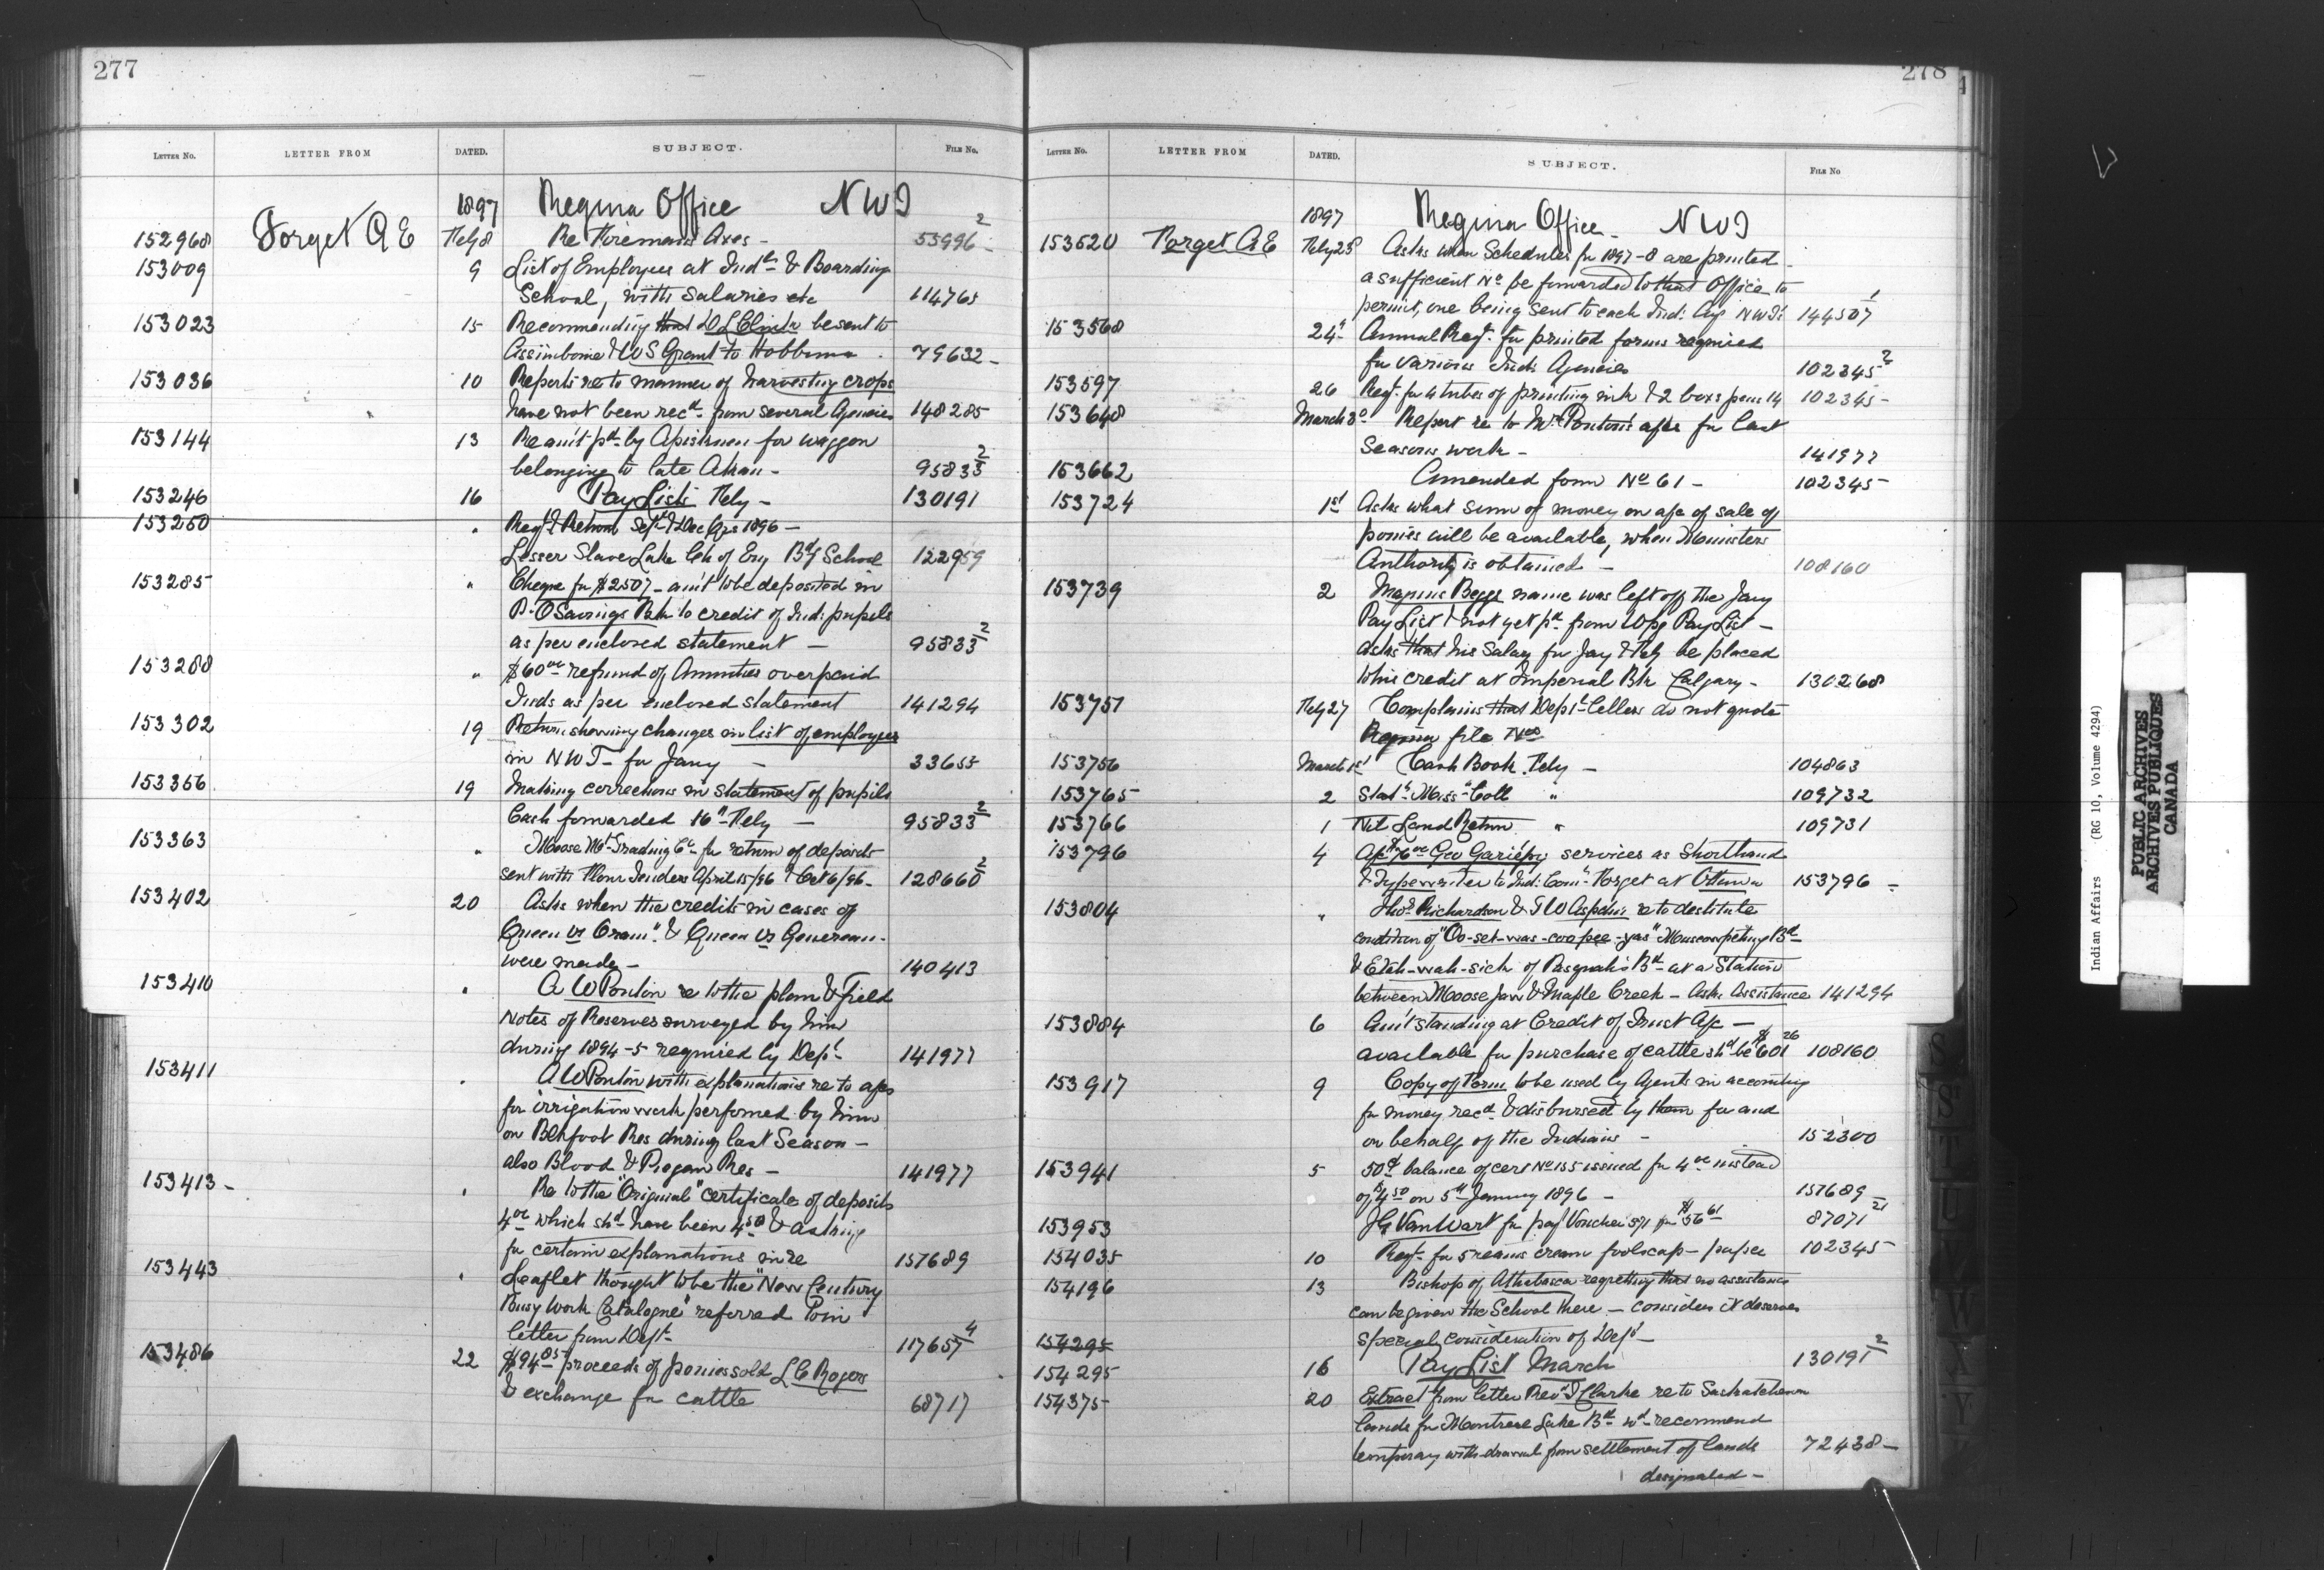 277
LETTER No. LETTER FROM DATED. SUBJECT. FILE No.
1897 Regina Office NWT
152968 Forget A E Feby 8 Re Firemans Axes - 55996 2
153009 9 List of Employees at Indl & Boarding
School, with salaries etc 114765
153023 15 Recommending that D L Clink be sent to
Assiniboine & W S Grant to Hobbema 79632 -
153036 10 Reports re to manner of harvesting crops
have not been recd from several Agencies 148285
153144 13 Re amt pd by Apistinun for waggon
belonging to late Ahan - 95833 2
153246 16 Pay Lists Feby - 130191
153250 " Reqt & Return Sept & Dec Qrs 1896 -
Lesser Slave Lake Ch of Eng Bdg School 122959
153285 " Cheque for $2507 - amt to be deposited in
P.O Savings Bk to credit of Ind: pupils
as per enclosed statement - 95833 2
153288 " $60 00 refund of Annuities overpaid
Inds as per enclosed statement 141294
153302 19 Return showing changes in list of employees
in N W T - for Jany - 33655
153356 19 Making corrections in statement of pupils
Cash forwarded 16th Feby - 95833 2
153363 " Moose Mt Trading Co for return of deposits
sent with Flour Tenders April 15/96 & Oct 6/96 - 128660 2
153402 20 Asks when the credits in cases of
Queen vs Oram & Queen vs Genereau -
were made - 140413
153410 " A W Ponton re to the plan & field
Notes of Reserves surveyed by him
during 1894-5 required by Dept 141977
153411 " A W Ponton with explanations re to a/cs
for irrigation work performed by him
on Blkfoot Res during last Season -
also Blood & Piegan Res - 141977
153413 - " Re to the "Original" certificate of deposits
4 00 which shd have been 4 50 & asking
for certain explanations in re 151689
153443 " Leaflet thought to be the "New Century
Busy Work Catalogue" referred to in
letter from Dept 117657 4
153486 22 $94 85 proceeds of ponies sold L C Rogers
& exchange for cattle 68717
278
LETTER No. LETTER FROM DATED. SUBJECT. FILE No
1897 Regina Office - NWT
153520 Forget A E Feby 23 Asks when Schedules for 1897-8 are printed -
a sufficient No be forwarded to that Office to
permit, one being sent to each Ind: Agy NWT 144507 1
153568 24 Annual Reqt for printed forms required
for various Ind: Agencies 102345 2
153597 26 Reqt for 4 tubes of printing ink & 2 boxs pens 14 102345 -
153648 March 3 Report re to Mr Ponton's a/cs for last
Seasons work - 141977
153662 Amended form No 61 - 102345
153724 1st Asks what sum of money on a/c of sale of
ponies will be available, when Ministers
Authority is obtained - 108160
153739 2 Magnus Beggs name was left off the Jany
Pay List & not yet pd from Wpg Pay List -
asks that his Salary for Jay & Feby be placed
to his credit at Imperial Bk Calgary - 130268
153751 Feby 27 Complains that Dept letters do not quote
Regina file Nos
153756 March 1st Cash Book Feby - 104863
153765 2 Statt Miss Coll " 109732
153766 1 Nil Land Return " 109731
153796 4 A/c $76 00 Geo Gariépy services as Shorthand
& Typewriter to Ind: Comr Forget at Ottawa 153796 -
153804 " Thos Richardson & T W Aspdin re to destitute
condition of "Oo-set-was-coo-pee-yas" Muscowpetung Bd
& Etah-wah-sich of Pasquah's Bd at a Station
between Moose Jaw & Maple Creek - Asks Assistance 141294
153884 6 Amt standing at Credit of Trust A/c -
available for purchase of cattle shd be $601 26 108160
153917 9 Copy of Form to be used by Agents in accounting
for money recd & disbursed by them for and
on behalf of the Indians - 152300
153941 5 50¢ balance of cert No 155 issued for 4 00 instead
of $4 50 on 5th January 1896 - 151689
153953 J G VanWart for pay Voucher 591 for $56 61 87071 21
154035 10 Reqt for 5 reams cream foolscap - paper 102345
154196 13 Bishop of Athabasca regretting that no assistance
can be given the School there - considers it deserves
special consideration of Dept -
154295
154295 16 Pay List March 130191 2
154375 20 Extract from letter Revd J Clarke re to Saskatchewan
Lands for Montreal Lake Bd wd recommend
temporary with-drawal from settlement of lands 72438 -
designated -
Indian Affairs (RG 10, Volume 4294)
PUBLIC ARCHIVES
ARCHIVES PUBLIQUES
CANADA